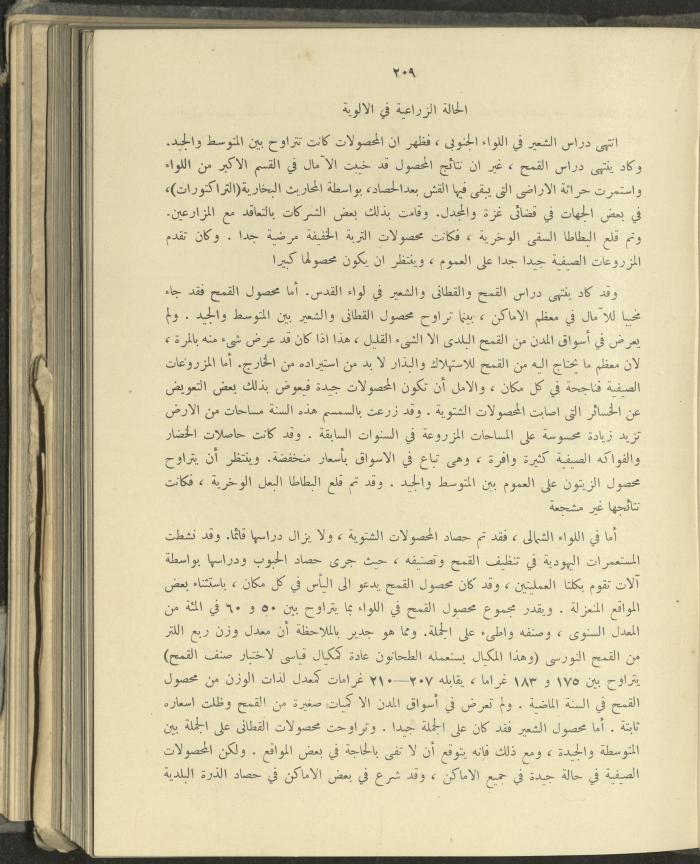 ٢٠٩
الحالة الزراعية في الالوية
انتهى دراس الشعير في اللواء الجنوبى ، فظهر ان المحصولات كانت تتراوح بين المتوسط والجيد.
وكاد ينتهى دراس القمح ، غير ان نتائج المحصول قد خيبت الآمال في القسم الاكبر من اللواء
واستمرت حراثة الاراضى التى يبقى فيها القش بعد الحصاد، بواسطة المحاريث البخارية (التراكتورات)،
في بعض الجهات في قضائى غزة والمجدل. وقامت بذلك بعض الشركات بالتعاقد مع المزارعين.
وتم قلع البطاطا السقى الوخرية ، فكانت محصولات التربة الخفيفة مرضية جدا . وكان تقدم
المزروعات الصيفية جيدا جدا على العموم ، وينتظر ان يكون محصولها كبيرا
وقد كاد ينتهى دراس القمح والقطانى والشعير في لواء القدس. أما محصول القمح فقد جاء
مخيبا للآمال في معظم الاماكن ، بينما تراوح محصول القطانى والشعير بين المتوسط والجيد . ولم
يعرض في أسواق المدن من القمح البلدى الا الشىء القليل ، هذا اذا كان قد عرض شىء منه بالمرة ،
لان معظم ما نحتاج اليه من القمح للاستهلاك والبذار لا بد من استيراده من الخارج. أما المزروعات
الصيفية فناجحة في كل مكان ، والامل أن تكون المحصولات جيدة فيعوض بذلك بعض التعويض
عن الخسائر التى اصابت المحصولات الشتوية . وقد زرعت بالسمسم هذه السنة مساحات من الارض
تزيد زيادة محسوسة على المساحات المزروعة في السنوات السابقة . وقد كانت حاصلات الخضار
والفواكه الصيفية كثيرة وافرة ، وهى تباع في الاسواق بأسعار منخفضة. وينتظر أن يتراوح
محصول الزيتون على العموم بين المتوسط والجيد . وقد تم قلع البطاطا البعل الوخرية ، فكانت
نتائجها غير مشجعة
أما في اللواء الشمالى ، فقد تم حصاد المحصولات الشتوية ، ولا يزال دراسها قائما. وقد نشطت
المستعمرات اليهودية في تنظيف القمح وتصنيفه ، حيث جرى حصاد الحبوب ودراسها بواسطة
آلات تقوم بكلتا العمليتين ، وقد كان محصول القمح يدعو الى اليأس في كل مكان ، باستثناء بعض
المواقع المنعزلة . ويقدر مجموع محصول القمح في اللواء بما يتراوح بين ٥٠ و ٦٠ في المئة من
المعدل السنوى ، وصنفه واطىء على الجملة. ومما هو جدير بالملاحظة أن معدل وزن ربع اللتر
من القمح النورسى (وهذا المكيال يستعمله الطحانون عادة كمكيال قياسى لاختبار صنف القمح)
يتراوح بين ١٧٥ و ١٨٣ غراما ، يقابله ٢٠٧—٢١٠ غرامات كمعدل لذات الوزن من محصول
القمح في السنة الماضية . ولم تعرض في أسواق المدن الا كميات صغيرة من القمح وظلت اسعاره
ثابتة . أما محصول الشعير فقد كان على الجملة جيدا . وتراوحت محصولات القطانى على الجملة بين
المتوسطة والجيدة ، ومع ذلك فانه يتوقع أن لا تفى بالحاجة في بعض المواقع . ولكن المحصولات
الصيفية في حالة جيدة في جميع الاماكن ، وقد شرع في بعض الاماكن في حصاد الذرة البلدية